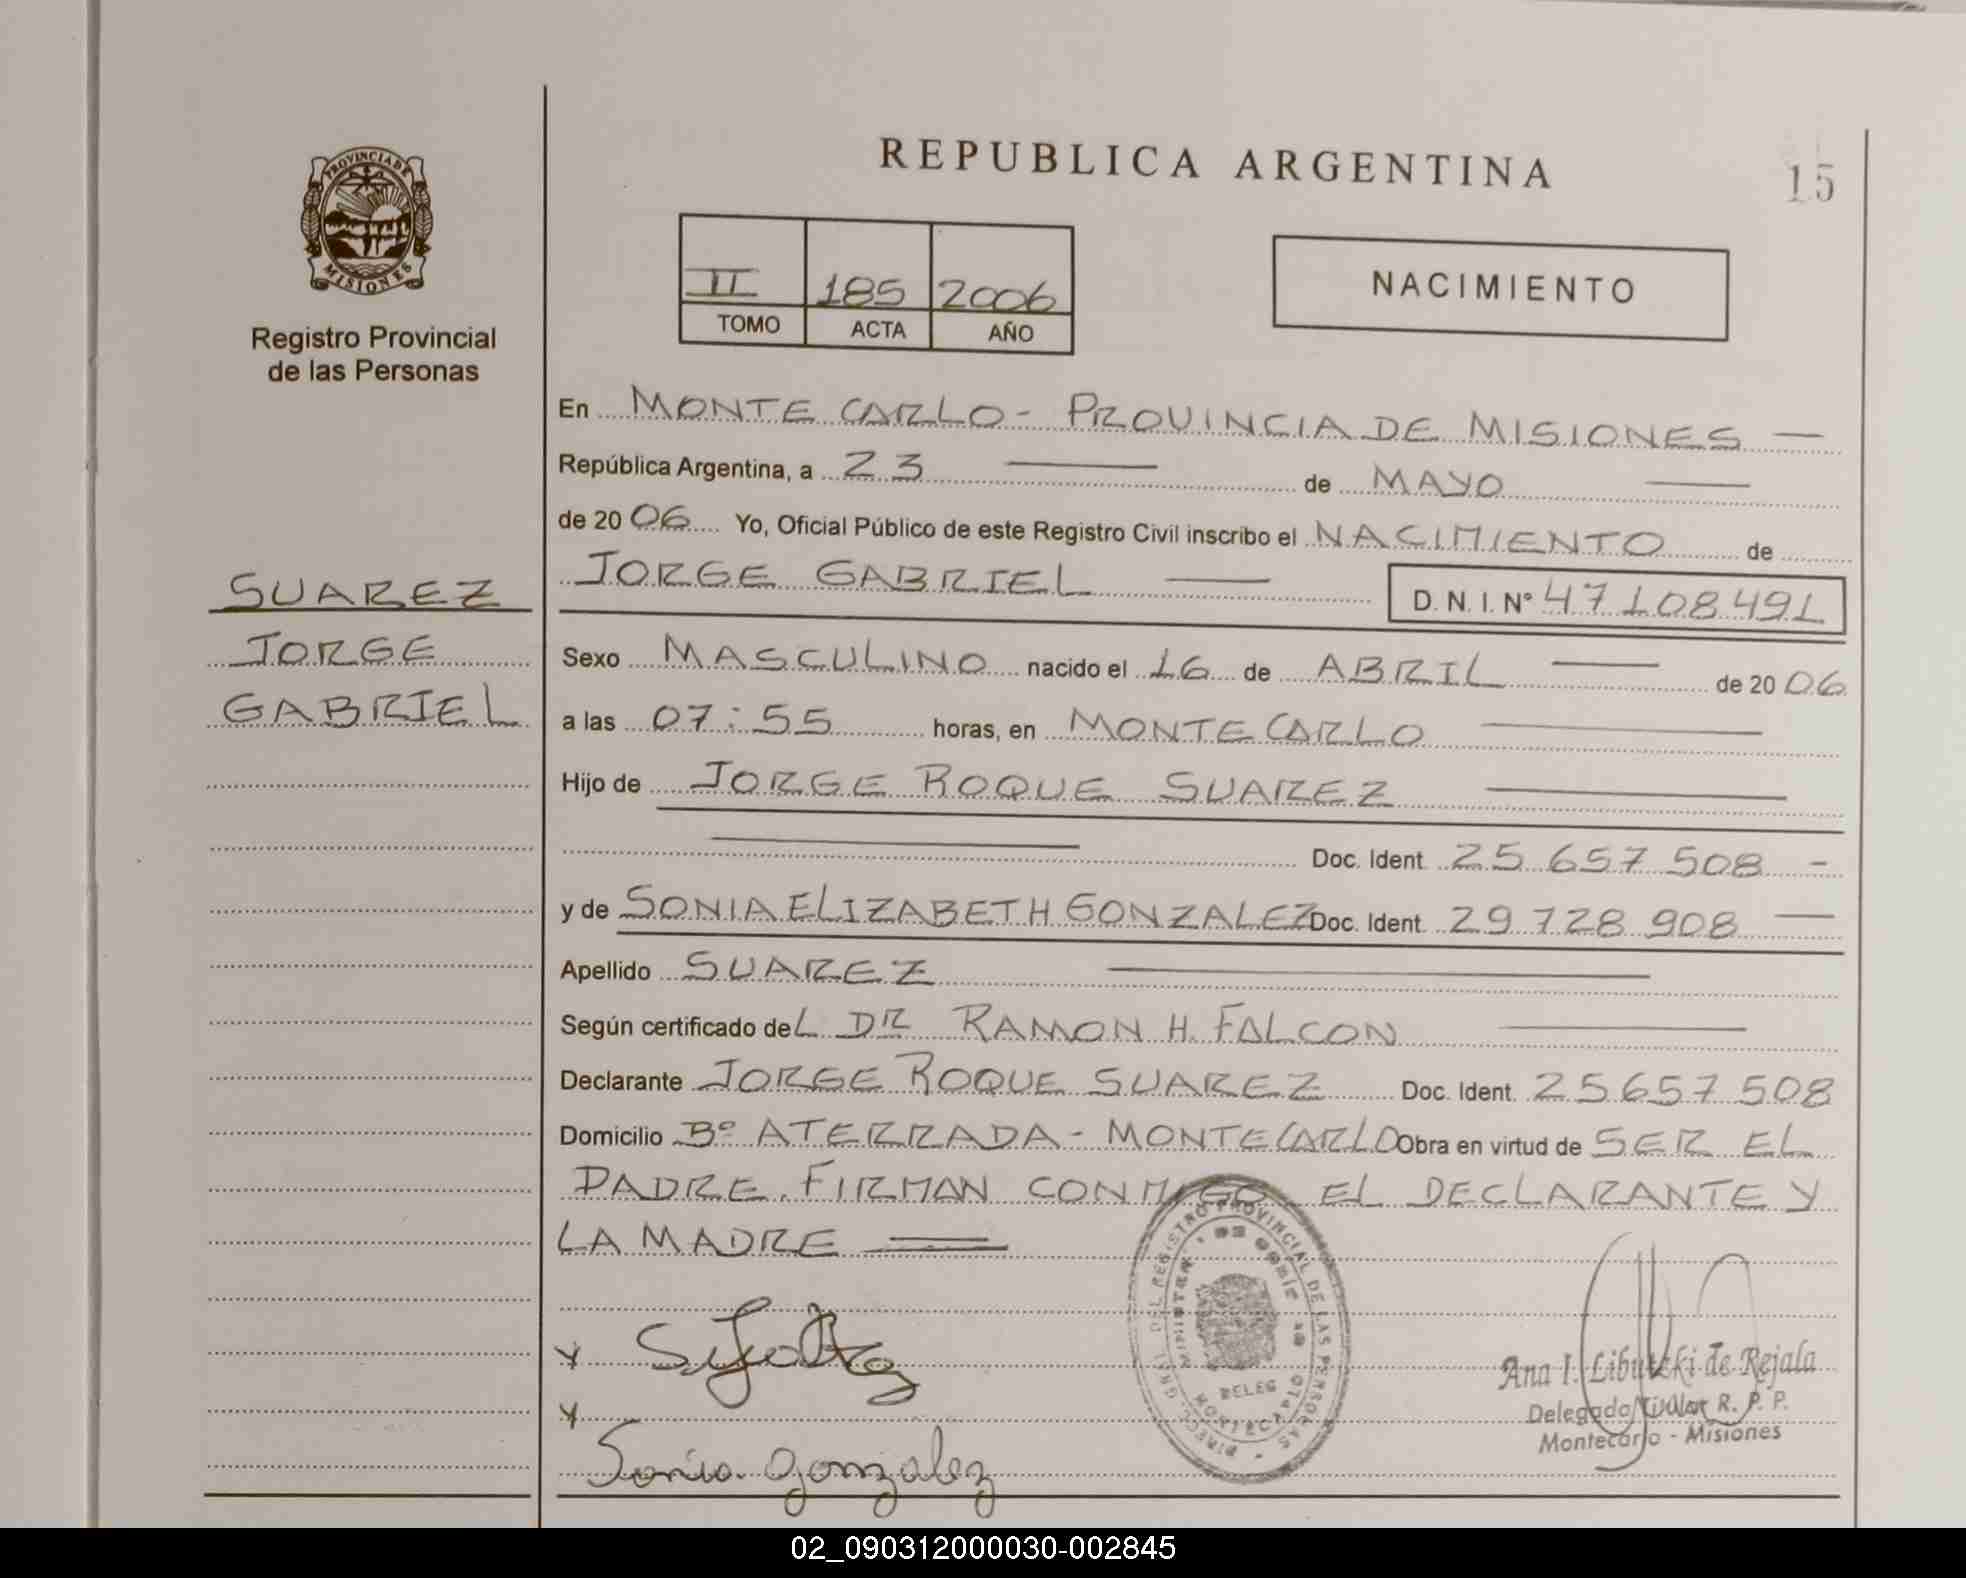 REPUBLICA ARGENTINA
15
PROVINCIA DE
MISIONES
Registro Provincial
de las Personas
II 185 2006
TOMO ACTA AÑO
NACIMIENTO
En MONTE CARLO - PROVINCIA DE MISIONES —
República Argentina, a 23 — de MAYO —
de 2006 Yo, Oficial Público de este Registro Civil inscribo el NACIMIENTO de
JORGE GABRIEL — D. N. I. Nº 47108491
SUAREZ
JORGE
GABRIEL
Sexo MASCULINO nacido el 16 de ABRIL — de 2006
a las 07:55 horas, en MONTECARLO —
Hijo de JORGE ROQUE SUAREZ —
— Doc. Ident. 25 657 508 -
y de SONIA ELIZABETH GONZALEZ Doc. Ident. 29 728 908 —
Apellido SUAREZ —
Según certificado deL DR RAMON H. FALCON —
Declarante JORGE ROQUE SUAREZ Doc. Ident. 25657508
Domicilio Bº ATERRADA - MONTECARLO Obra en virtud de SER EL
PADRE. FIRMAN CONMIGO EL DECLARANTE Y
LA MADRE —
DIRECC. GRAL DEL REGISTRO PROVINCIAL DE LAS PERSONAS
DELEG
Ana I. Libutzki de Rejala
Delegado Titular R. P. P.
Montecarlo - Misiones
Sonia Gonzalez
02_090312000030-002845